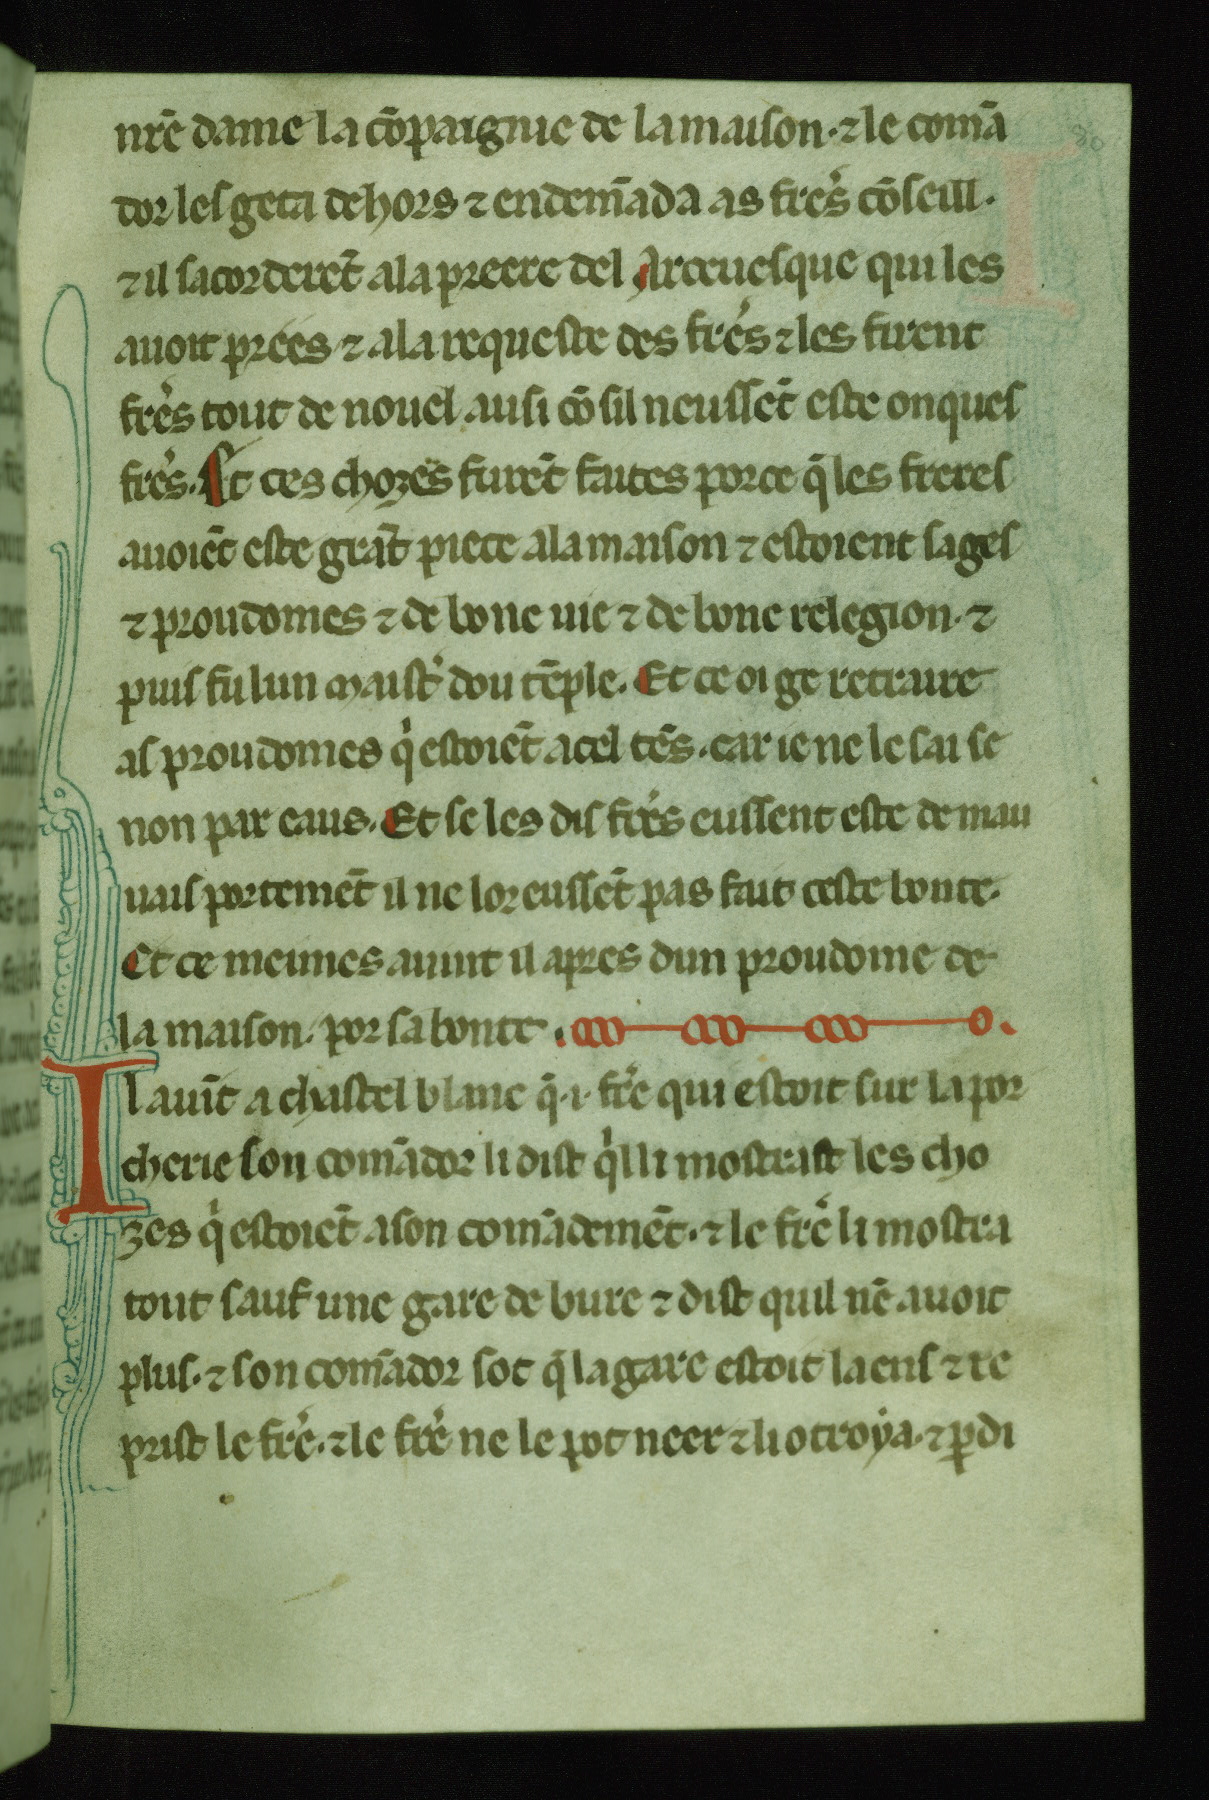 nr̃e dame la cõpaignie de la maison · ⁊ le comã
dor les geta dehors ⁊ en demãda as frẽs cõseill ·
⁊ il sacorderẽt a la preere del Arceuesque qui les
auoit prees · ⁊ a la requeste des frẽs ⁊ les firent
frẽs tout de nouel ausi cõ sil neussẽt este onques
frẽs . Et ces chozes furẽt faites por ce q̃ les freres
auoiẽt este grãt piece a la maison ⁊ estoient sages
⁊ proudomes ⁊ de bone uie ⁊ de bone relegion · ⁊
puis fu lun maistr̃ dou tẽple . Et ce oi ge retraire
as proudomes q̃ estoiẽt a cel tẽs . car ie ne le sai se
non par eaus . Et se les dis frẽs eussent este de mau
uais portemẽt il ne lor eussẽt pas fait ceste bonte .
Et ce meimes auint il apres dun proudome de
la maison . por sa bonte .
Il auĩt a chastel blanc q̃ · i · frẽ qui estoit sur la por
cherie son comãdor li dist q̃l li mostrast les cho
zes q̃ estoiẽt a son comãdemẽt . ⁊ le frẽ li mostra
tout sauf une gare de bure ⁊ dist quil nẽ auoit
plus . ⁊ son comãdor sot q̃ la gare estoit laens ⁊ re
prist le frẽ . ⁊ le frẽ ne le pot neer ⁊ li otroya . ⁊ ꝑdi
80